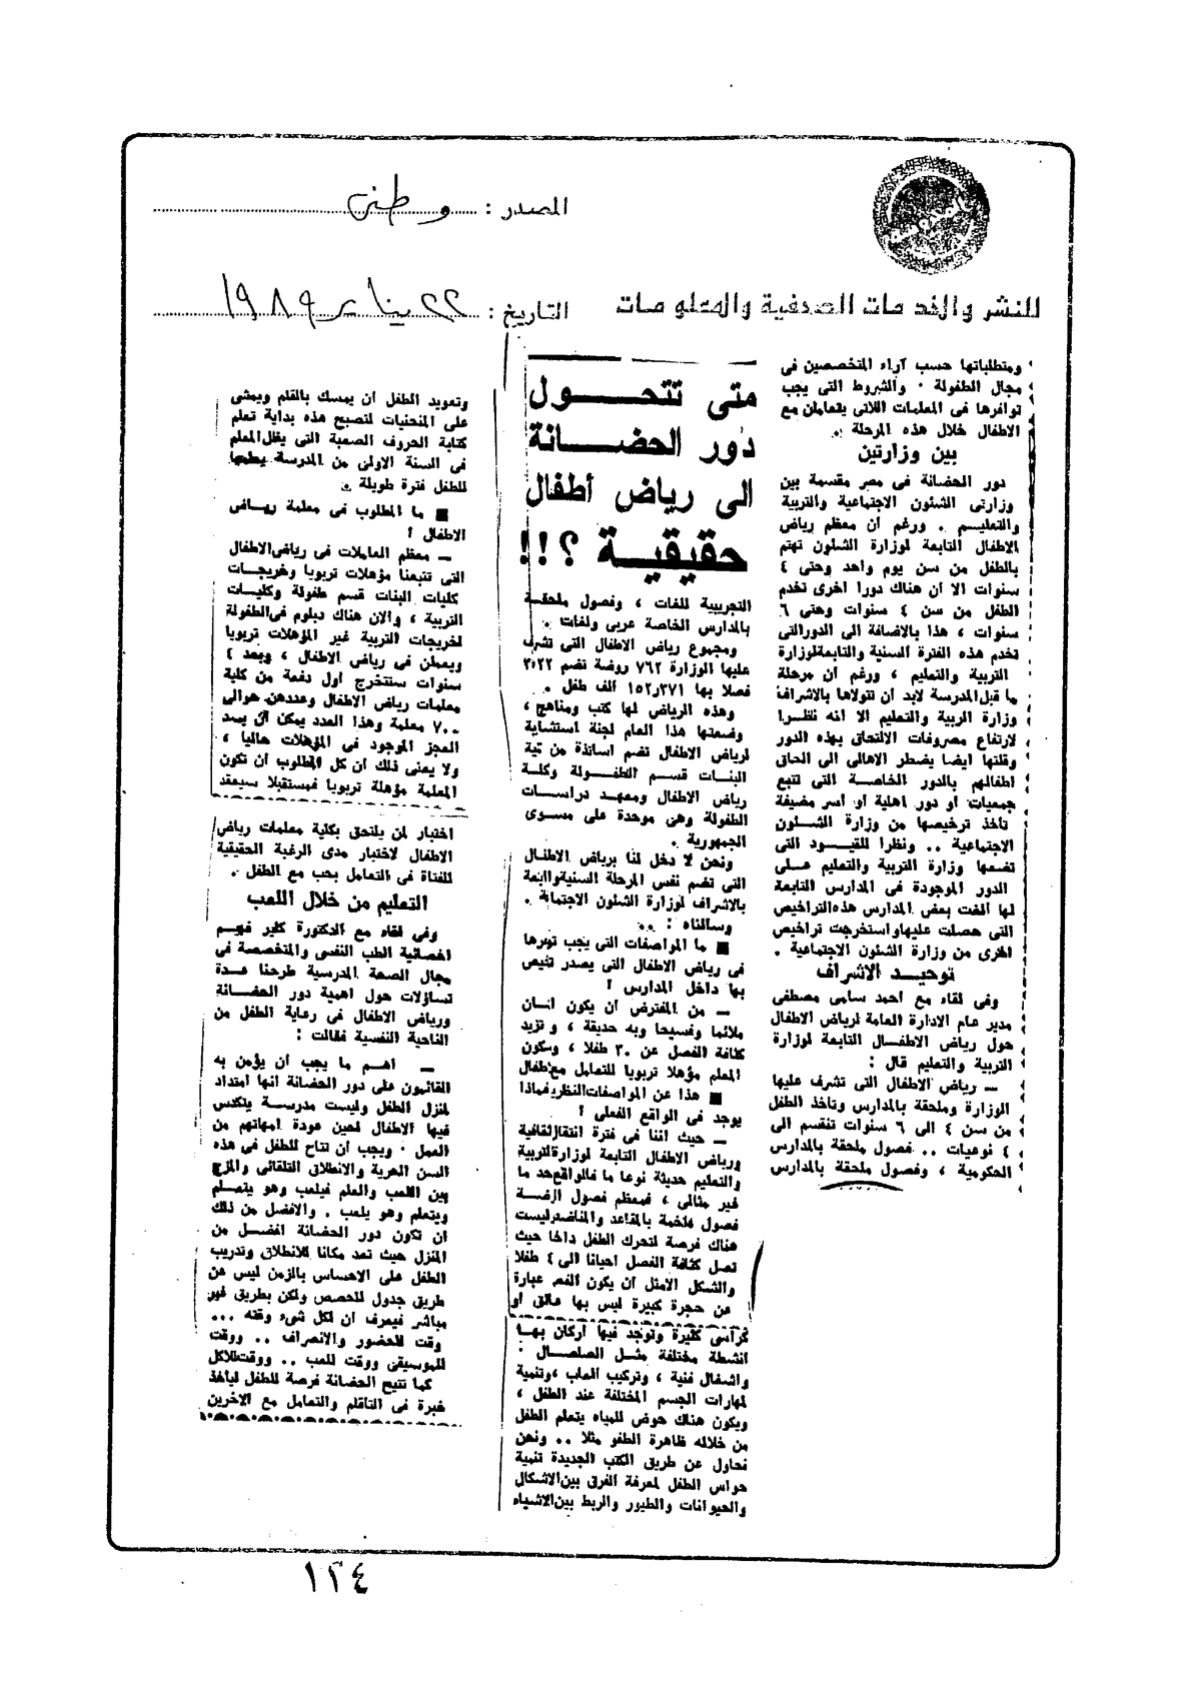 المصدر : وطنى
للنشر والخدمات الصحفية والمعلومات
التاريخ : ٢٢ يناير ١٩٨٩
متى تتحول
دور الحضانة
الى رياض أطفال
حقيقية ؟!!
ومتطلباتها حسب آراء المتخصصين فى
مجال الطفولة . والشروط التى يجب
توافرها فى المعلمات اللاتى يتعاملن مع
الاطفال خلال هذه المرحلة .
بين وزارتين
دور الحضانة فى مصر مقسمة بين
وزارتى الشئون الاجتماعية والتربية
والتعليم . ورغم أن معظم رياض
الاطفال التابعة لوزارة الشئون تهتم
بالطفل من سن يوم واحد وحتى ٤
سنوات الا أن هناك دورا اخرى تخدم
الطفل من سن ٤ سنوات وحتى ٦
سنوات ، هذا بالاضافة الى الدور التى
تخدم هذه الفترة السنية والتابعة لوزارة
التربية والتعليم ، ورغم أن مرحلة
ما قبل المدرسة لابد أن تتولاها بالاشراف
وزارة الربية والتعليم الا انه نظرا
لارتفاع مصروفات الالتحاق بهذه الدور
وقلتها ايضا يضطر الاهالى الى الحاق
اطفالهم بالدور الخاصة التى تتبع
جمعيات أو دور اهلية أو اسر مضيفة
تأخذ ترخيصها من وزارة الشئون
الاجتماعية .. ونظرا للقيود التى
تضعها وزارة التربية والتعليم على
الدور الموجودة فى المدارس التابعة
لها ألغت بعض المدارس هذه التراخيص
التى حصلت عليها واستخرجت تراخيص
اخرى من وزارة الشئون الاجتماعية .
توحيد الاشراف
وفى لقاء مع احمد سامى مصطفى
مدير عام الادارة العامة لرياض الاطفال
حول رياض الاطفال التابعة لوزارة
التربية والتعليم قال :
ــ رياض الاطفال التى تشرف عليها
الوزارة وملحقة بالمدارس وتأخذ الطفل
من سن ٤ الى ٦ سنوات تنقسم الى
٤ نوعيات .. فصول ملحقة بالمدارس
الحكومية ، وفصول ملحقة بالمدارس
التجريبية للغات ، وفصول ملحقة
بالمدارس الخاصة عربى ولغات .
ومجموع رياض الاطفال التى تشرف
عليها الوزارة ٧٦٢ روضة تضم ٣٥٢٢
فصلا بها ١٥٢٫٣٧١ ألف طفل .
وهذه الرياض لها كتب ومناهج ،
وضعتها هذا العام لجنة استشارية
لرياض الاطفال تضم اساتذة من
البنات قسم الطفولة وكلية
رياض الاطفال ومعهد دراسات
الطفولة وهى موحدة على مستوى
الجمهورية .
ونحن لا دخل لنا برياض الاطفال
التى تضم نفس المرحلة السنية والتابعة
بالاشراف لوزارة الشئون الاجتماعية .
وسألناه : ..
■ ما المواصفات التى يجب توفرها
فى رياض الاطفال التى يصدر ترخيص
بها داخل المدارس !
ــ من المفترض أن يكون المكان
ملائما وفسيحا وبه حديقة ، و تزيد
كثافة الفصل عن ٣٠ طفلا ، ويكون
المعلم مؤهلا تربويا للتعامل مع طفال
■ هذا عن المواصفات النظرية فماذا
يوجد فى الواقع الفعلى !
ــ حيث اننا فى فترة انتقال ثقافية
ورياض الاطفال التابعة لوزارة التربية
والتعليم حديثة نوعا ما فالواقع حد ما
غير مثالى ، فمعظم فصول الروضة
فصول مزدحمة بالمقاعد والمناضد وليست
هناك فرصة لتحرك الطفل داخلها حيث
تصل كثافة الفصل احيانا الى ٤٠ طفلا
والشكل الامثل أن يكون الفصل عبارة
عن حجرة كبيرة ليس بها عائق أو
كراسى كثيرة وتوجد فيها أركان بها
أنشطة مختلفة مثل الصلصال .
واشغال فنية ، وتركيب ألعاب ، وتنمية
لمهارات الجسم المختلفة عند الطفل ،
ويكون هناك حوض للمياه يتعلم الطفل
من خلاله ظاهرة الطفو مثلا .. ونحن
نحاول عن طريق الكتب الجديدة تنمية
حواس الطفل لمعرفة الفرق بين الاشكال
والحيوانات والطيور والربط بين الاشياء
وتعويد الطفل أن يمسك بالقلم ويمشى
على المنحنيات لتصبح هذه بداية تعلم
كتابة الحروف الصعبة التى يظل المعلم
فى السنة الاولى من المدرسة يعلمها
للطفل فترة طويلة .
■ ما المطلوب فى معلمة رياض
الاطفال !
ــ معظم العاملات فى رياض الاطفال
التى تتبعنا مؤهلات تربويا وخريجات
كليات البنات قسم طفولة وكليات
التربية ، والان هناك دبلوم فى الطفولة
لخريجات التربية غير المؤهلات تربويا
ويعملن فى رياض الاطفال ، وبعد ٤
سنوات ستتخرج اول دفعة من كلية
معلمات رياض الاطفال وعددهن حوالى
٧٠٠ معلمة وهذا العدد يمكن أن يسد
العجز الموجود فى المؤهلات حاليا ،
ولا يعنى ذلك أن كل المطلوب أن تكون
المعلمة مؤهلة تربويا فمستقبلا سيعقد
اختبار لمن يلتحق بكلية معلمات رياض
الاطفال لاختبار مدى الرغبة الحقيقية
للفتاة فى التعامل بحب مع الطفل .
التعليم من خلال اللعب
وفى لقاء مع الدكتورة كلير فهيم
اخصائية الطب النفسى والمتخصصة فى
مجال الصحة المدرسية طرحنا عدة
تساؤلات حول أهمية دور الحضانة
ورياض الاطفال فى رعاية الطفل من
الناحية النفسية فقالت :
ــ اهم ما يجب أن يؤمن به
القائمون على دور الحضانة انها امتداد
لمنزل الطفل وليست مدرسة يتكدس
فيها الاطفال لحين عودة امهاتهم من
العمل . ويجب أن تتاح للطفل فى هذه
السن الحرية والانطلاق التلقائى والمزج
بين اللعب والعلم فيلعب وهو يتعلم
ويتعلم وهو يلعب . والافضل من ذلك
أن تكون دور الحضانة افضل من
المنزل حيث تعد مكانا للانطلاق وتدريب
الطفل على الاحساس بالزمن ليس عن
طريق جدول للحصص ولكن بطريق غير
مباشر فيعرف أن لكل شىء وقته ...
وقت للحضور والانصراف .. ووقت
للموسيقى ووقت للعب .. ووقت للاكل
كما تتيح الحضانة فرصة للطفل ليأخذ
خبرة فى التأقلم والتعامل مع الاخرين
١٢٤